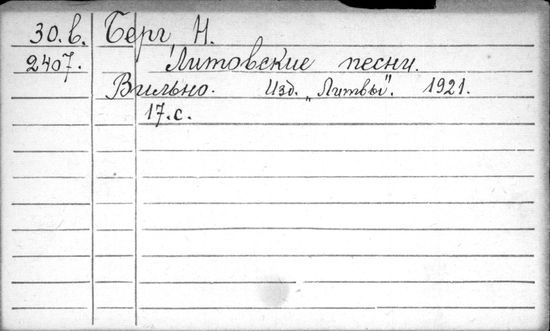 30.в. Берг Н.
2407. Литовские песни.
Вильно. Изд. „Литвы". 1921.
17.с.